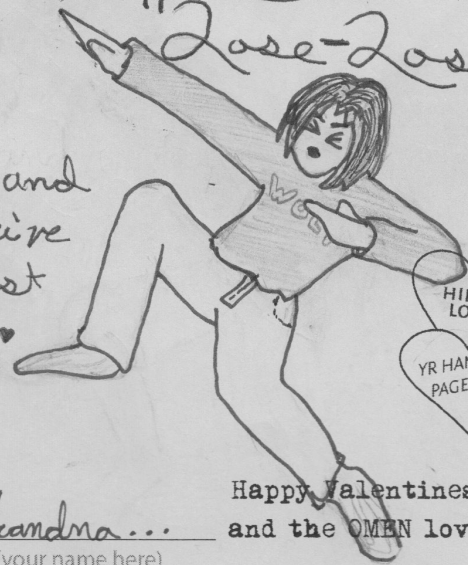 "Lose-Los
and
st
WOLF
HII
LO
YR HAN
PAGE
Happy Valentines
and the OMEN lov
(your name here)